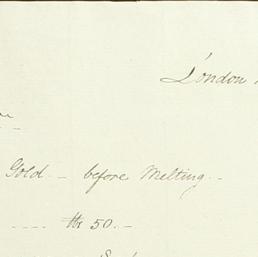 London
Gold -- before Melting --
---- lb 50. --